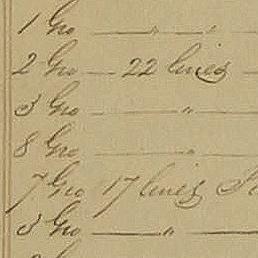 1 Gro — " — "
2 Gro — 22 lines —
3 Gro — "
8 Gro — "
7 Gro 17 lines
3 Gro — " —